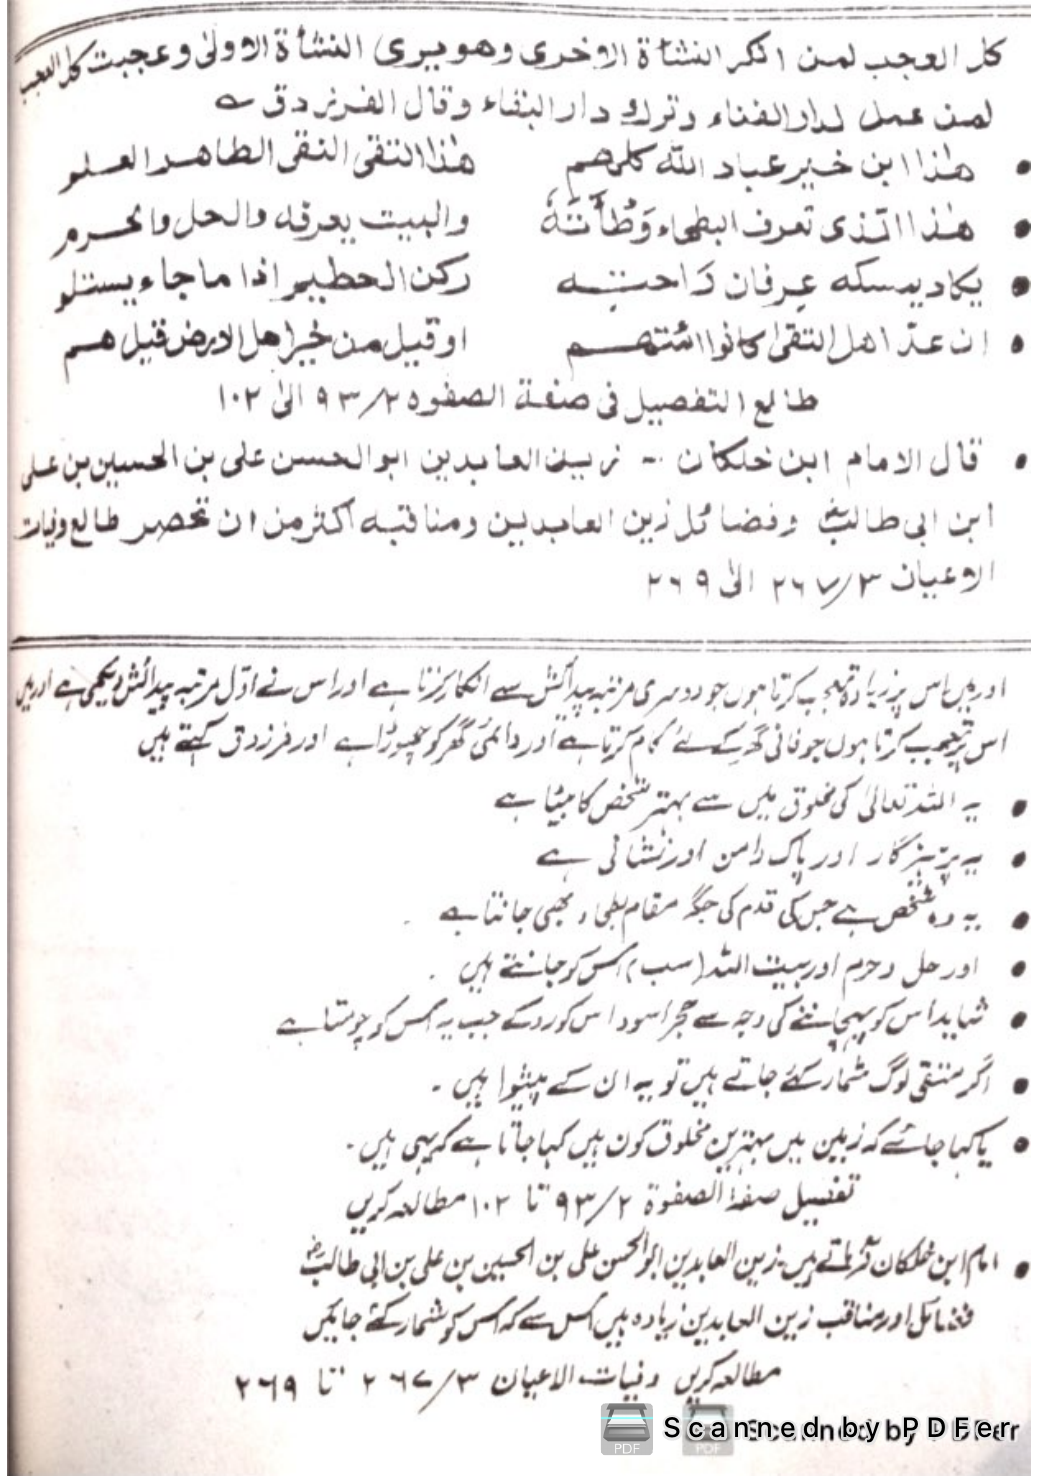 كل العجب لمن انكر النشأة الاخرى وهو يرى النشأة الاولىٰ وعجبت كل العجب
لمن عمل لدار الفناء وترك دار البقاء وقال الفرزدق ے
• هٰذا ابن خير عباد الله كلهم هٰذا التقى النقى الطاهر العلم
• هٰذا الذى تعرف البطحاء وَطْأَتَهٗ والبيت يعرفه والحل والحرم
• يكاد يمسكه عرفان رَاحته ركن الحطيم اذا ما جاء يستلم
• ان عدّ اهل التقىٰ كانوا ائمتهم او قيل من خير اهل الارض قيل هم
طالع التفصيل فى صفة الصفوه ٩٣/٢ الىٰ ١٠٢
• قال الامام ابن خلكان ۔ زين العابدين ابو الحسن على بن الحسين بن على
ابن ابى طالب رض وفضائل زين العابدين ومناقبه اكثر من ان تحصر طالع وفيات
الاعيان ٢٦٧/٣ الىٰ ٢٦٩
اور میں اس پر زیادہ تعجب کرتا ہوں جو دوسری مرتبہ پیدائش سے انکار کرتا ہے اور اس نے اوّل مرتبہ پیدائش دیکھی ہے اور میں
اس پر تعجب کرتا ہوں جو فانی گھر کے لئے کام کرتا ہے اور دائمی گھر کو چھوڑا ہے اور فرزدق کہتے ہیں
• یہ اللہ تعالیٰ کی مخلوق میں سے بہتر شخص کا بیٹا ہے
• یہ پرہیزگار اور پاک دامن اور نشانی ہے
• یہ وہ شخص ہے جس کی قدم کی جگہ مقام بطحاء بھی جانتا ہے
• اور حل وحرم اور بیت اللہ (سب) اس کو جانتے ہیں ۔
• شاید اس کو پہچاننے کی وجہ سے حجر اسود اس کو روکے جب یہ اس کو چومتا ہے
• اگر متقی لوگ شمار کئے جاتے ہیں تو یہ ان کے پیشوا ہیں ۔
• یا کہا جائے کہ زمین میں بہترین مخلوق کون ہیں کہا جاتا ہے کہ یہی ہیں ۔
تفصیل صفۃ الصفوۃ ٩٣/٢ تا ١٠٢ مطالعہ کریں
• امام ابن خلکان فرماتے ہیں ۔ زین العابدین ابوالحسن علی بن الحسین بن علی بن ابی طالب رض
فضائل اور مناقب زین العابدین زیادہ ہیں اس سے کہ اس کو شمار کئے جائیں
مطالعہ کریں وفیات الاعیان ٢٦٧/٣ تا ٢٦٩
Scanned by PDFer
Scanned by PDFer